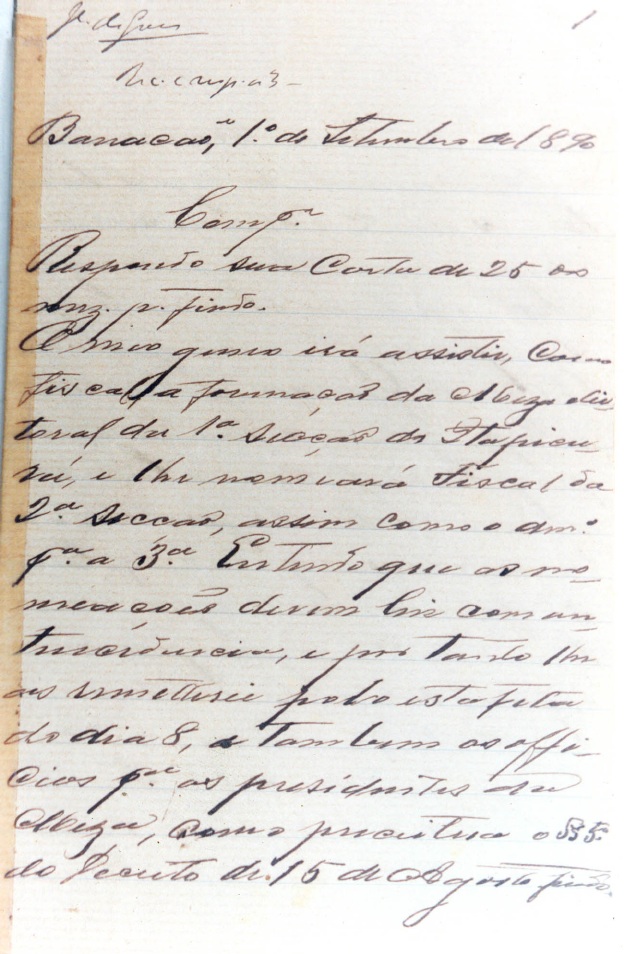 Barracão, 1.º de Setembro de 1890
Comp.e
Respondo sua Carta de 25 do
mez p. findo.
O meo genro irá assistir, como
fiscal a formação da Meza elei
toral da 1.ª Secção do Itapicu-
rú, e lhe nomeará fiscal da
2.ª Secção, assim como o am.º
p.ª a 3.ª Entendo que as no-
meações devem hir com an-
tecedencia, e por tanto lhe
as remetterei pelo estafeta
do dia 8, e tambem os offi-
cios p.ª os presidentes da
Meza, como preceitua o § 5.º
do Decreto de 15 de Agosto findo.